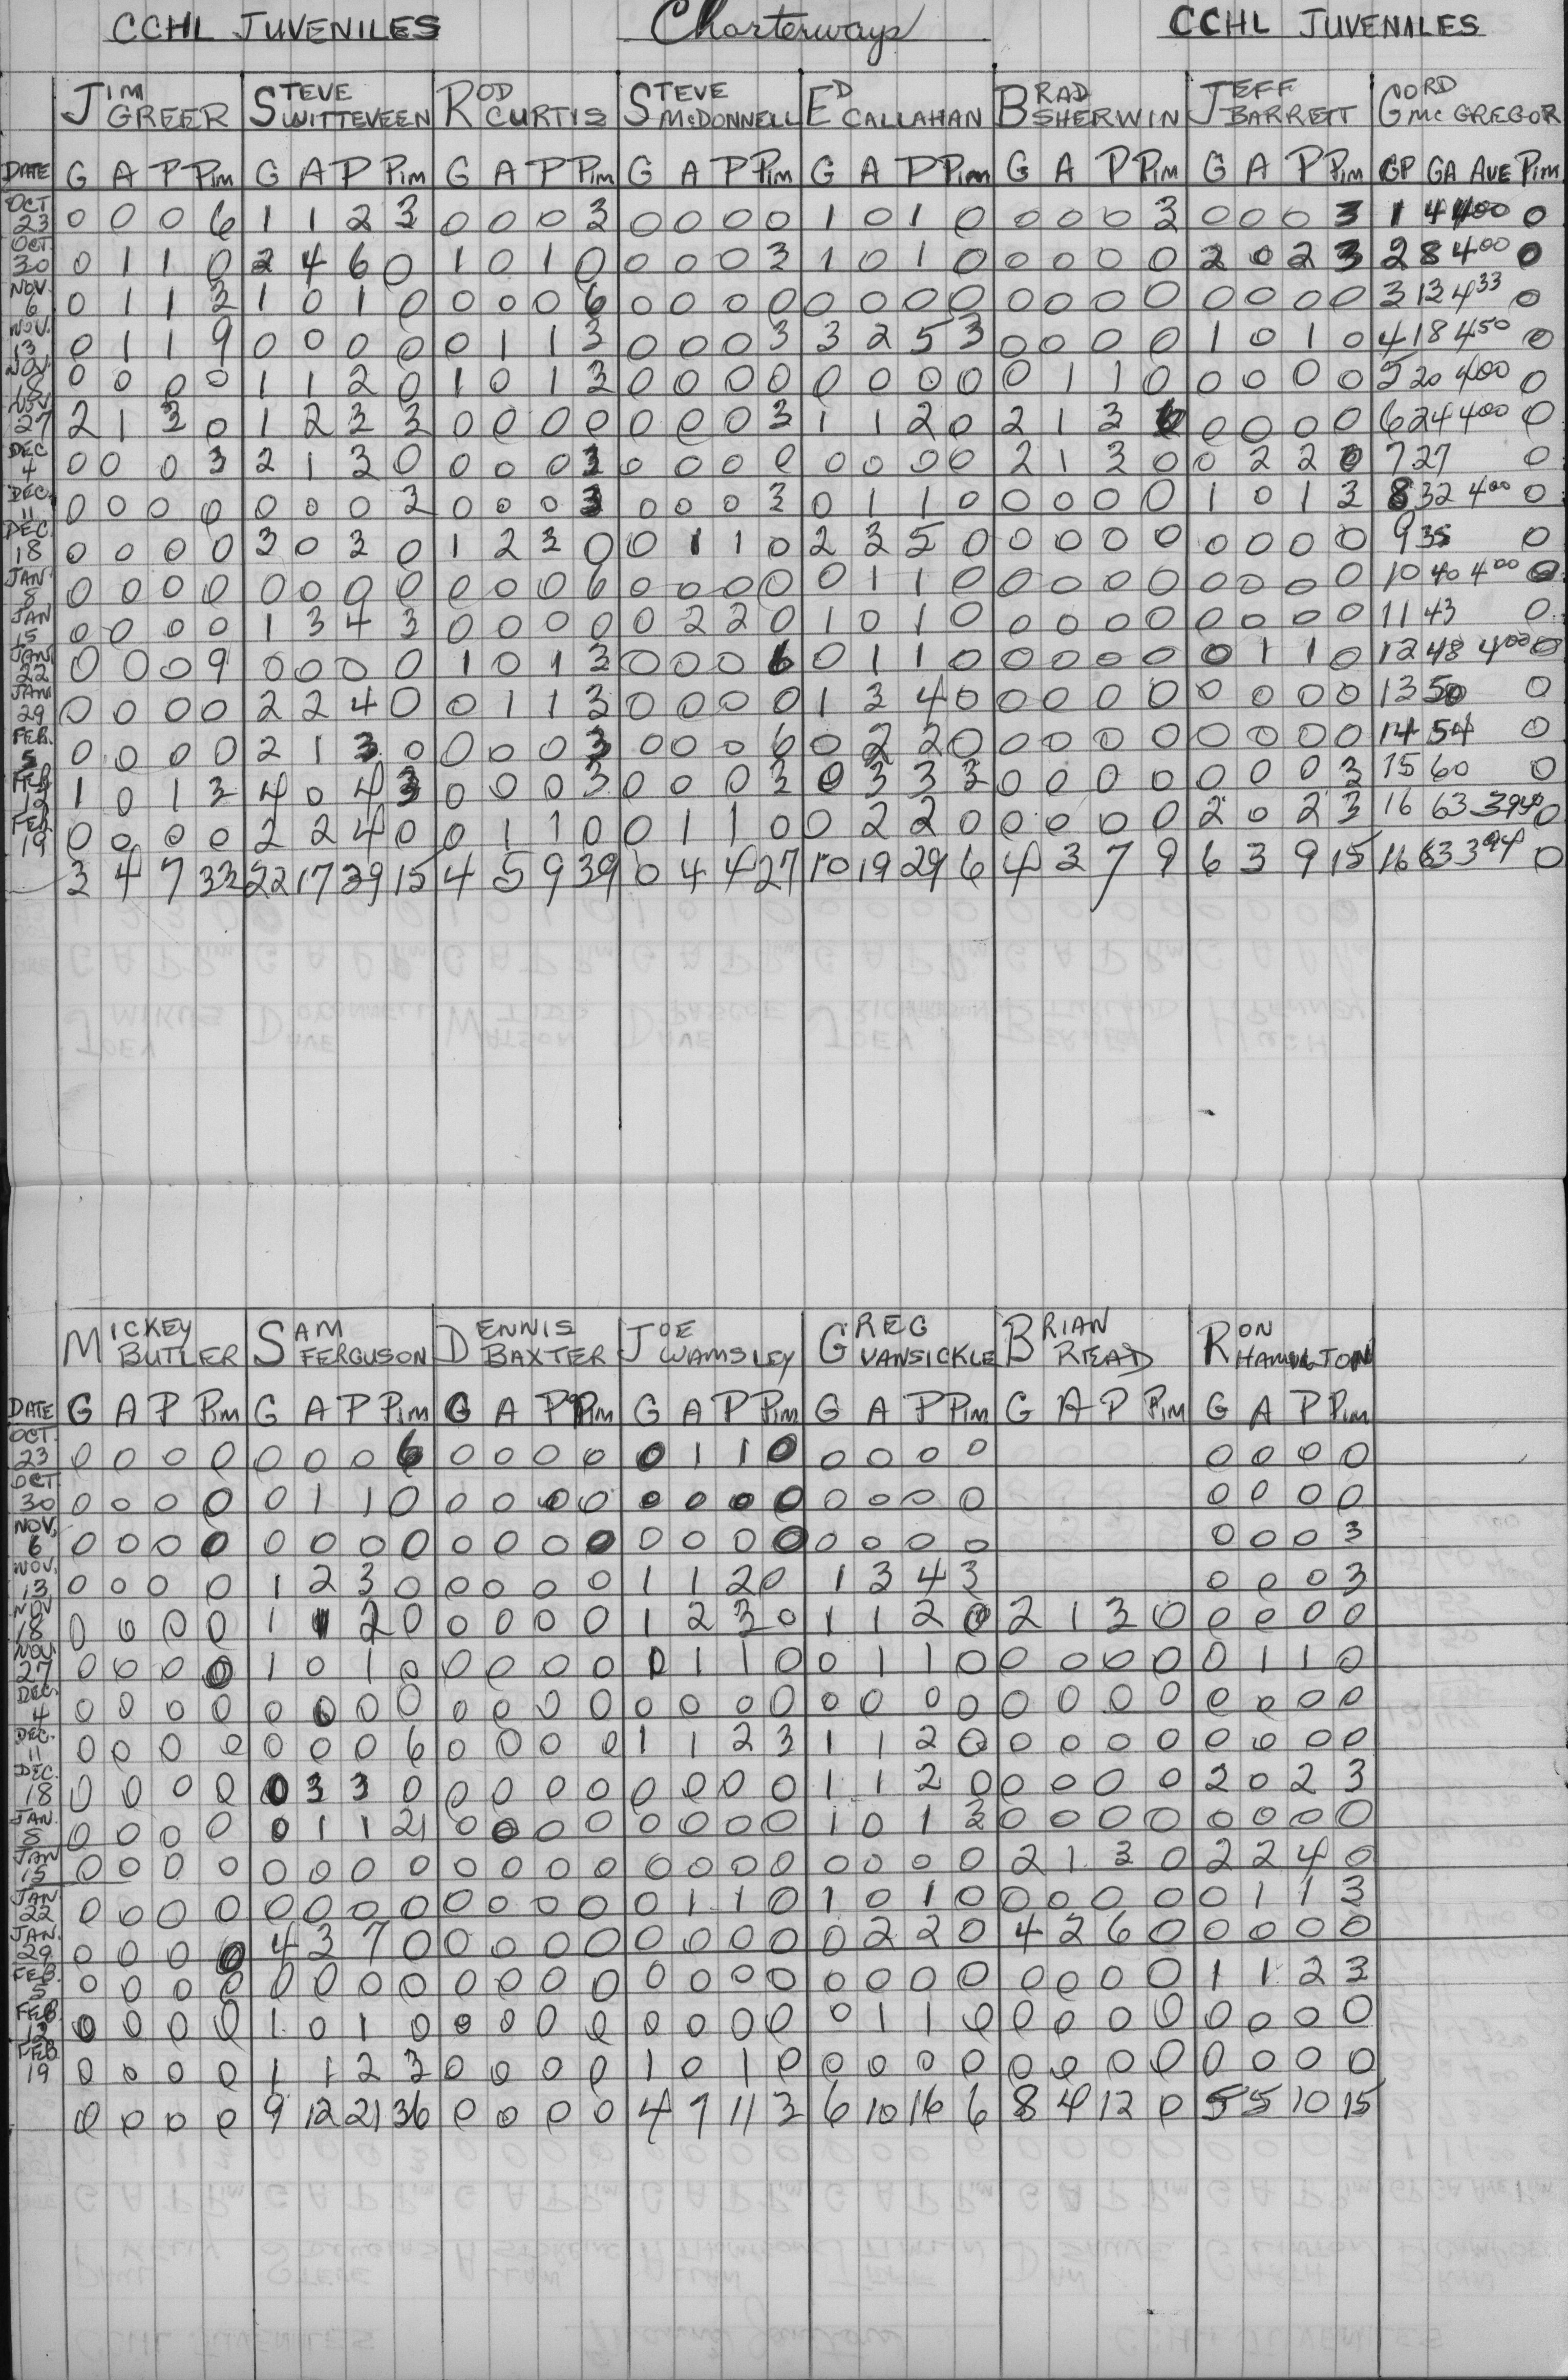 CCHL JUVENILES Charterways CCHL JUVENALES
JIM GREER STEVE WITTEVEEN ROD CURTIS STEVE McDONNELL ED CALLAHAN BRAD SHERWIN JEFF BARRETT GORD McGREGOR
DATE G A P Pim G A P Pim G A P Pim G A P Pim G A P Pim G A P Pim G A P Pim GP GA AVE Pim
OCT 23 0 0 0 6 1 1 2 3 0 0 0 3 0 0 0 0 1 0 1 0 0 0 0 3 0 0 0 3 1 4 400 0
OCT 30 0 1 1 0 2 4 6 0 1 0 1 0 0 0 0 3 1 0 1 0 0 0 0 0 2 0 2 3 2 8 400 0
NOV. 6 0 1 1 3 1 0 1 0 0 0 0 6 0 0 0 0 0 0 0 0 0 0 0 0 0 0 0 0 3 13 433 0
NOV. 13 0 1 1 9 0 0 0 0 0 1 1 3 0 0 0 3 3 2 5 3 0 0 0 0 1 0 1 0 4 18 450 0
NOV. 18 0 0 0 0 1 1 2 0 1 0 1 3 0 0 0 0 0 0 0 0 0 1 1 0 0 0 0 0 5 20 400 0
NOV 27 2 1 3 0 1 2 3 3 0 0 0 0 0 0 0 3 1 1 2 0 2 1 3 6 0 0 0 0 6 24 400 0
DEC 4 0 0 0 3 2 1 3 0 0 0 0 3 0 0 0 0 0 0 0 0 2 1 3 0 0 2 2 0 7 27 0
DEC. 11 0 0 0 0 0 0 0 3 0 0 0 3 0 0 0 3 0 1 1 0 0 0 0 0 1 0 1 3 8 32 400 0
DEC. 18 0 0 0 0 3 0 3 0 1 2 3 0 0 1 1 0 2 3 5 0 0 0 0 0 0 0 0 0 9 35 0
JAN 5 0 0 0 0 0 0 0 0 0 0 0 6 0 0 0 0 0 1 1 0 0 0 0 0 0 0 0 0 10 40 400 0
JAN 15 0 0 0 0 1 3 4 3 0 0 0 0 0 2 2 0 1 0 1 0 0 0 0 0 0 0 0 0 11 43 0
JAN 22 0 0 0 9 0 0 0 0 1 0 1 3 0 0 0 6 0 1 1 0 0 0 0 0 0 1 1 0 12 48 400 0
JAN 29 0 0 0 0 2 2 4 0 0 1 1 3 0 0 0 0 1 3 4 0 0 0 0 0 0 0 0 0 13 50 0
FEB. 5 0 0 0 0 2 1 3 0 0 0 0 3 0 0 0 6 0 2 2 0 0 0 0 0 0 0 0 0 14 54 0
FEB 12 1 0 1 3 4 0 4 3 0 0 0 3 0 0 0 3 0 3 3 3 0 0 0 0 0 0 0 3 15 60 0
FEB 19 0 0 0 0 2 2 4 0 0 1 1 0 0 1 1 0 0 2 2 0 0 0 0 0 2 0 2 3 16 63 394 0
3 4 7 33 22 17 39 15 4 5 9 39 0 4 4 27 10 19 29 6 4 3 7 9 6 3 9 15 16 63 394 0
MICKEY BUTLER SAM FERGUSON DENNIS BAXTER JOE WAMSLEY GREG VANSICKLE BRIAN READ RON HAMILTON
DATE G A P Pim G A P Pim G A P Pim G A P Pim G A P Pim G A P Pim G A P Pim
OCT. 23 0 0 0 0 0 0 0 6 0 0 0 0 0 1 1 0 0 0 0 0 0 0 0 0
OCT. 30 0 0 0 0 0 1 1 0 0 0 0 0 0 0 0 0 0 0 0 0 0 0 0 0
NOV. 6 0 0 0 0 0 0 0 0 0 0 0 0 0 0 0 0 0 0 0 0 0 0 0 3
NOV. 13 0 0 0 0 1 2 3 0 0 0 0 0 1 1 2 0 1 3 4 3 0 0 0 3
NOV 18 0 0 0 0 1 1 2 0 0 0 0 0 1 2 3 0 1 1 2 0 2 1 3 0 0 0 0 0
NOV. 27 0 0 0 0 1 0 1 0 0 0 0 0 0 1 1 0 0 1 1 0 0 0 0 0 0 1 1 0
DEC. 4 0 0 0 0 0 0 0 0 0 0 0 0 0 0 0 0 0 0 0 0 0 0 0 0 0 0 0 0
DEC. 11 0 0 0 0 0 0 0 6 0 0 0 0 1 1 2 3 1 1 2 0 0 0 0 0 0 0 0 0
DEC. 18 0 0 0 0 0 3 3 0 0 0 0 0 0 0 0 0 1 1 2 0 0 0 0 0 2 0 2 3
JAN. 5 0 0 0 0 0 1 1 21 0 0 0 0 0 0 0 0 1 0 1 3 0 0 0 0 0 0 0 0
JAN 15 0 0 0 0 0 0 0 0 0 0 0 0 0 0 0 0 0 0 0 0 2 1 3 0 2 2 4 0
JAN 22 0 0 0 0 0 0 0 0 0 0 0 0 0 1 1 0 1 0 1 0 0 0 0 0 0 1 1 3
JAN. 29 0 0 0 0 4 3 7 0 0 0 0 0 0 0 0 0 0 2 2 0 4 2 6 0 0 0 0 0
FEB. 5 0 0 0 0 0 0 0 0 0 0 0 0 0 0 0 0 0 0 0 0 0 0 0 0 1 1 2 3
FEB 12 0 0 0 0 1 0 1 0 0 0 0 0 0 0 0 0 0 1 1 0 0 0 0 0 0 0 0 0
FEB 19 0 0 0 0 1 1 2 3 0 0 0 0 1 0 1 0 0 0 0 0 0 0 0 0 0 0 0 0
0 0 0 0 9 12 21 36 0 0 0 0 4 7 11 3 6 10 16 6 8 4 12 0 5 5 10 15